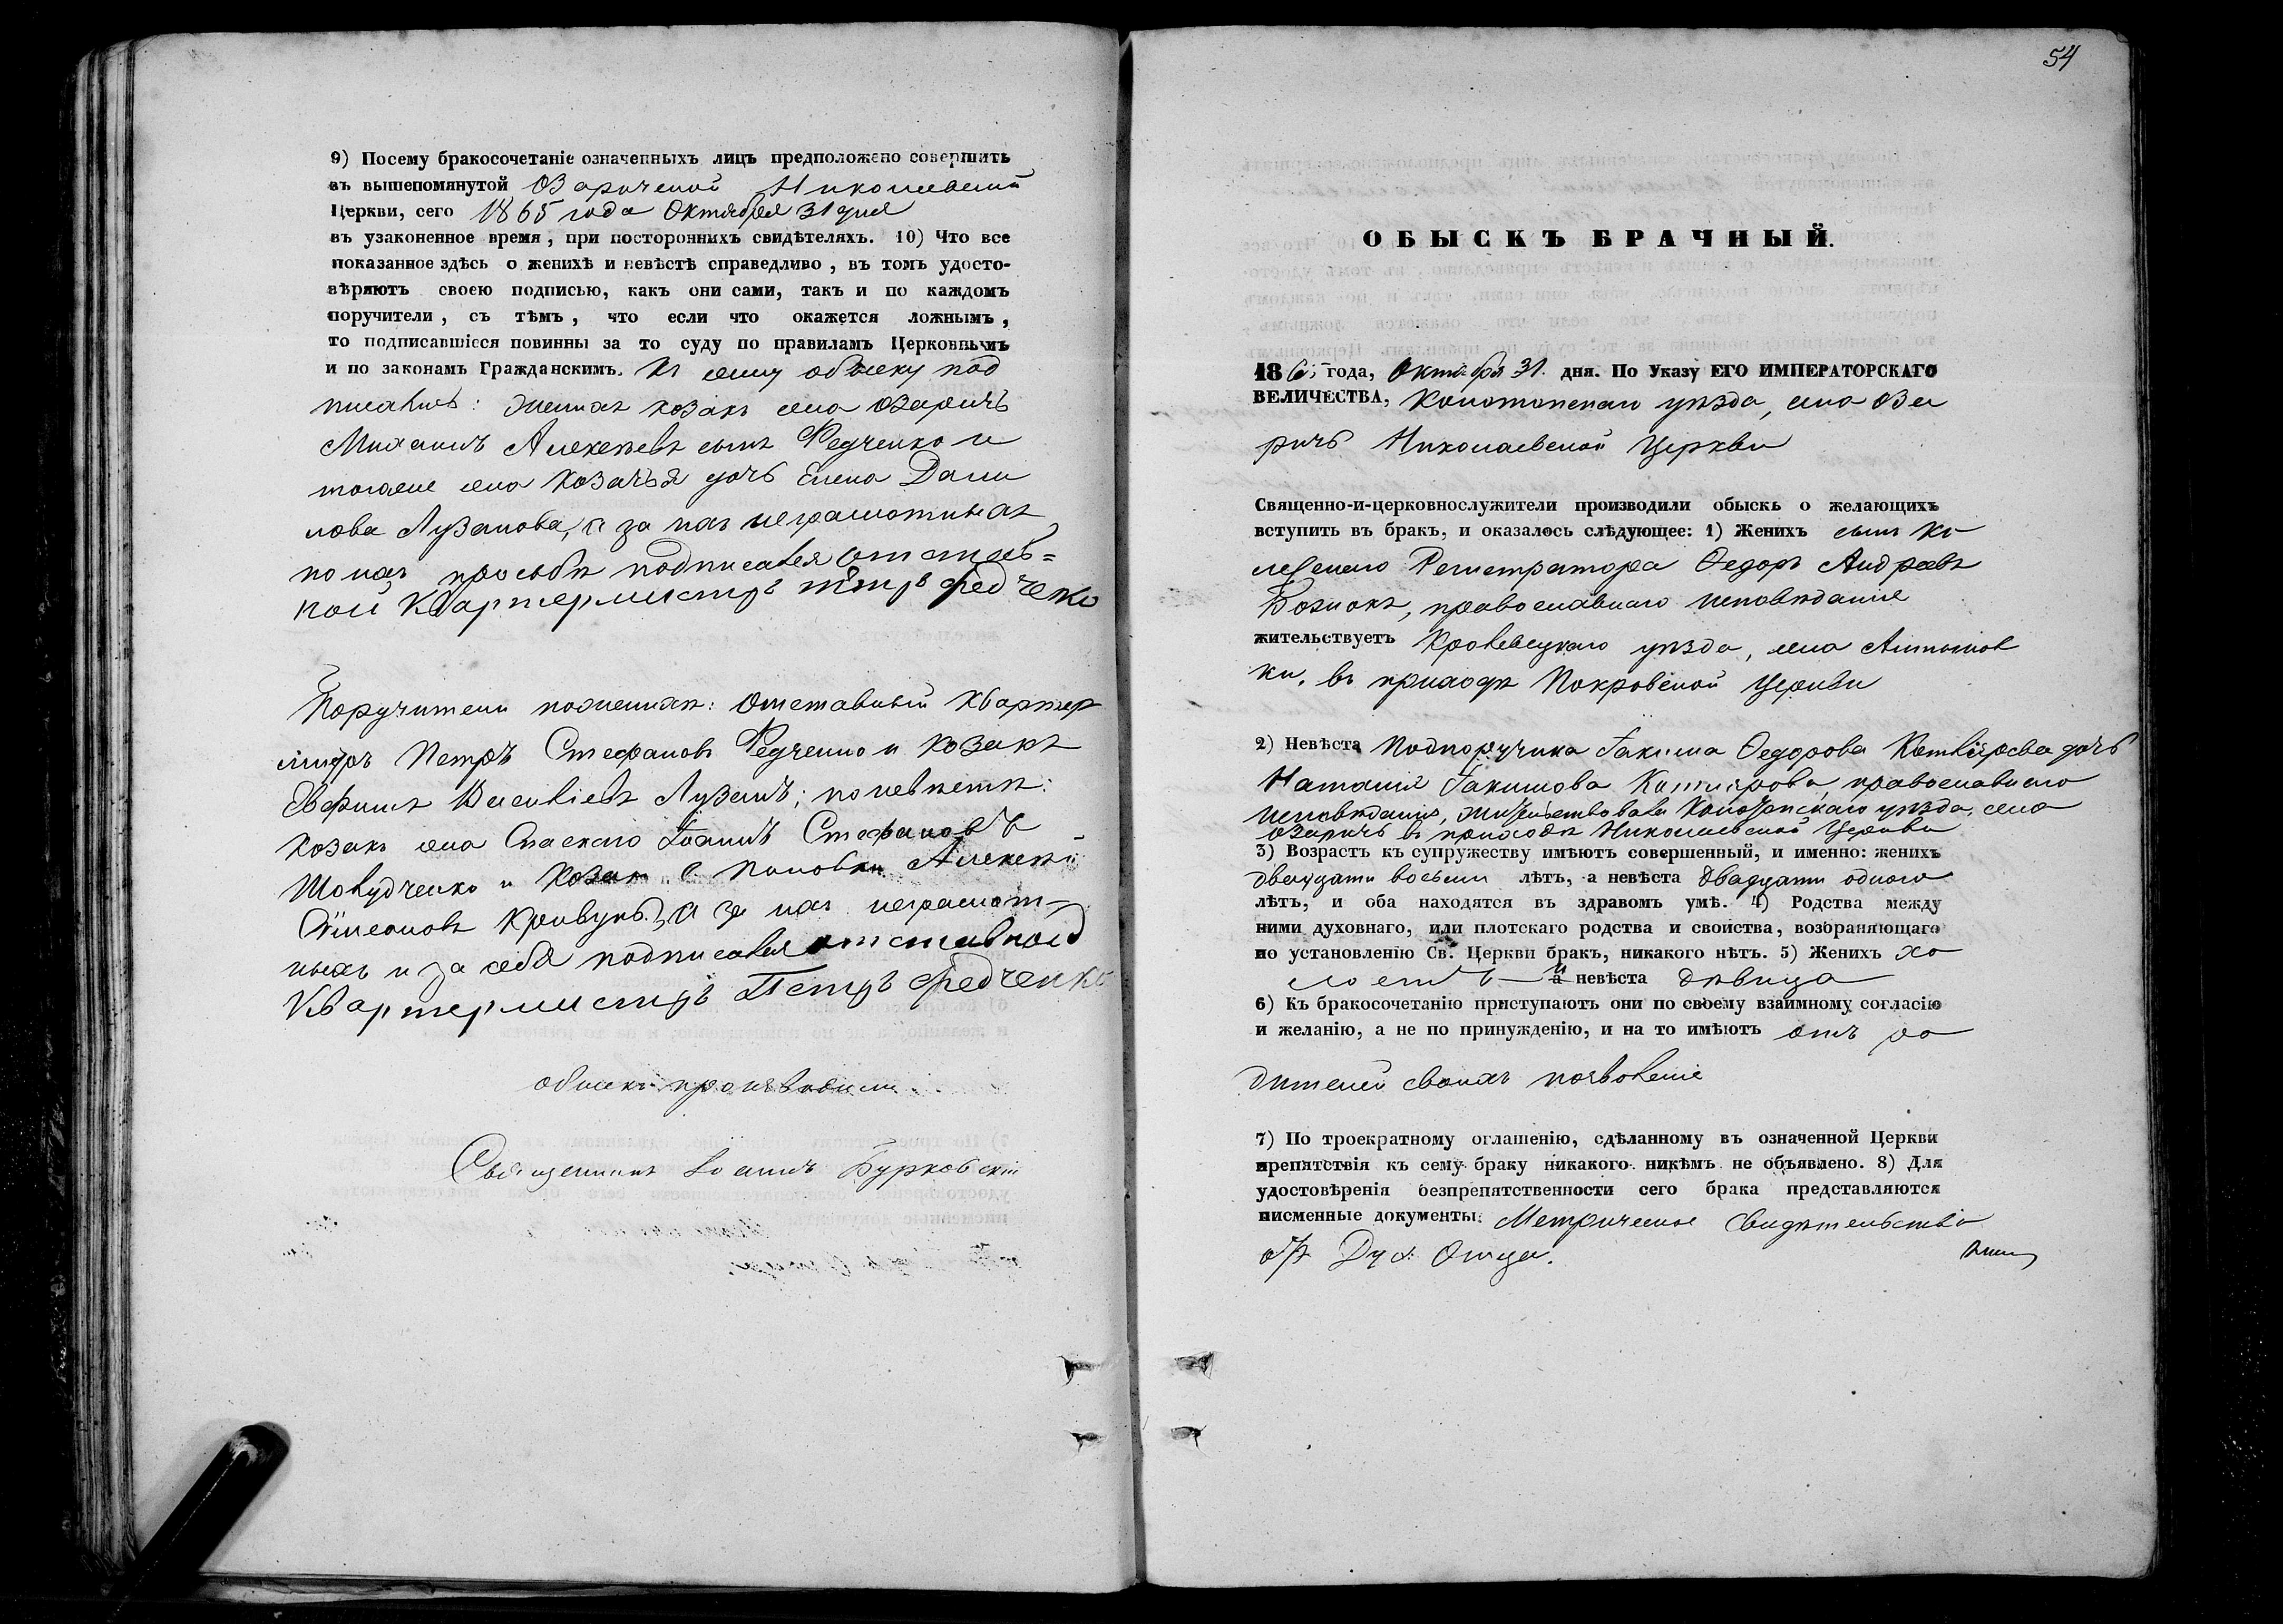 9) Посему бракосочетаніе означенныхъ лицъ предположено совершить
въ вышепомянутой Озаричской Николаевской
Церкви, сего 1865 года Октября 31 дня
въ узаконенное время, при постороннихъ свидѣтеляхъ. 10) Что все
показанное здѣсь о женихѣ и невѣстѣ справедливо, въ томъ удосто-
вѣряютъ своею подписью, какъ они сами, такъ и по каждомъ
поручители, съ тѣмъ, что если что окажется ложнымъ,
то подписавшіеся повинны за то суду по правиламъ Церковнымъ
и по законамъ Гражданскимъ. Къ сему обыску под
писались: женихъ козакъ села Озаричъ
Михаилъ Алексѣевъ сынъ Федченко и
тогоже села козачья дочь Елена Дани
лова Лузанова, а за нихъ неграмотныхъ
по ихъ просьбѣ подписался отстав=
ной Квартермистръ Петръ Федченко
Поручители по женихѣ: отставный Квартер
мистръ Петръ Стефановъ Федченко и козакъ
Евфимъ Василіевъ Лузанъ; по невѣстѣ:
козакъ села Спаскаго Іоаннъ Стефановъ
Шовудченко и козак с Поповки Алексѣй
Симеоновъ Кривунъ, а за ихъ неграмот-
ныхъ и за себя подписался отставной
Квартермистръ Петръ Федченко
обыскъ производили
Священникъ Іоаннъ Бурковскій
54
ОБЫСКЪ БРАЧНЫЙ.
1865 года, Октября 31. дня. По Указу ЕГО ИМПЕРАТОРСКАГО
ВЕЛИЧЕСТВА, Конотопскаго уѣзда, села Оза
ричъ Николаевской Церкви
Священно-и-церковнослужители производили обыскъ о желающихъ
вступить въ бракъ, и оказалось слѣдующее: 1) Женихъ сынъ Ко
лежскаго Регистратора Федоръ Андреевъ
православнаго исповѣданія
жительствуетъ Кролевецкаго уѣзда, села Антонов
ки, въ приходѣ Покровской Церкви
2) Невѣста Подпоручика Іакима Федорова дочь
Наталія Іакимова православнаго
исповѣданія, жительствовала Конотопскаго уѣзда, села
Озаричъ въ приходѣ Николаевской Церкви
3) Возрастъ къ супружеству имѣютъ совершенный, и именно: женихъ
двадцати восьми лѣтъ, а невѣста двадцати одного
лѣтъ, и оба находятся въ здравомъ умѣ. 4) Родства между
ними духовнаго, или плотскаго родства и свойства, возбраняющаго
по установленію Св. Церкви бракъ, никакого нѣтъ. 5) Женихъ хо
лостъ и невѣста дѣвица
6) Къ бракосочетанію приступаютъ они по своему взаимному согласію
и желанію, а не по принужденію, и на то имѣютъ отъ ро
дителей своихъ позволеніе
7) По троекратному оглашенію, сдѣланному въ означенной Церкви
препятствія къ сему браку никакого никѣмъ не объявлено. 8) Для
удостовѣренія безпрепятственности сего брака представляются
писменные документы: Метрическое свидѣтельство
Дух. Отца.